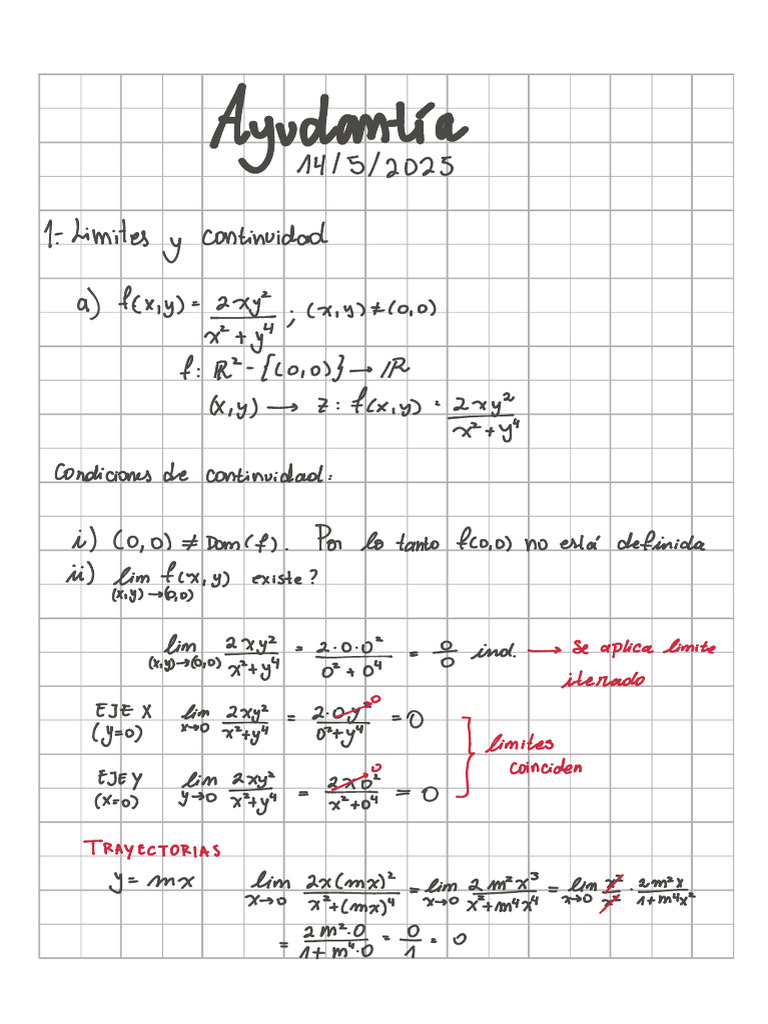 Ayudantía
14/5/2025
1.- Limites y continuidad
a) f(x,y) = 2xy² / x² + y⁴ ; (x,y) ≠ (0,0)
f: ℝ² - {(0,0)} → ℝ
(x,y) → z: f(x,y) = 2xy² / x² + y⁴
Condiciones de continuidad:
i) (0,0) ≠ Dom(f). Por lo tanto f(0,0) no está definida
ii) lim (x,y)→(0,0) f(x,y) existe?
lim (x,y)→(0,0) 2xy² / x² + y⁴ = 2·0·0² / 0² + 0⁴ = 0/0 ind. → Se aplica limite
iterado
EJE X (y=0) lim x→0 2xy² / x² + y⁴ = 2·0·y² 0 / 0² + y⁴ = 0
limites
coinciden
EJE Y (x=0) lim y→0 2xy² / x² + y⁴ = 2x0² 0 / x² + 0⁴ = 0
TRAYECTORIAS
y = mx lim x→0 2x(mx)² / x² + (mx)⁴ = lim x→0 2m²x³ / x² + m⁴x⁴ = lim x→0 x² / x² · 2m²x / 1 + m⁴x²
= 2m²·0 / 1 + m⁴·0 = 0/1 = 0